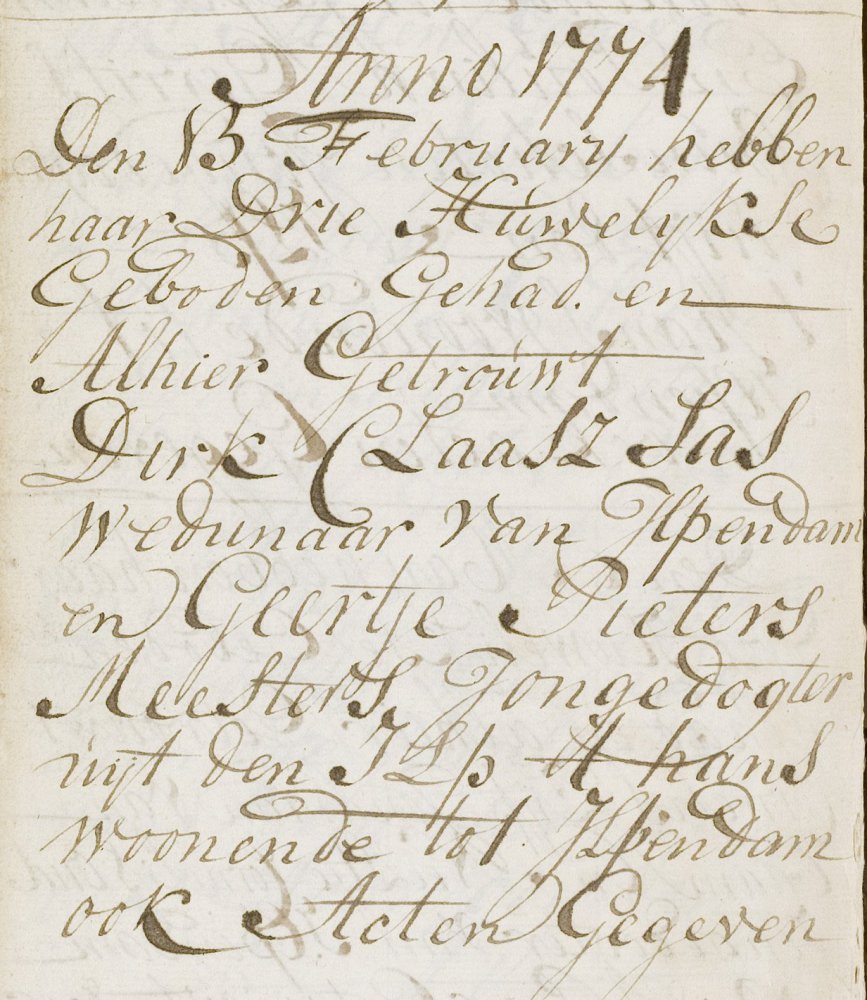 Anno 1774
Den 13 February hebben
haar Drie Huwelykse
Geboden Gehad. en
Alhier Getrouwt
Dirk Claasz Sas
Wedunaar Van Ilpendam
en Geertje Pieters
Meesters Jongedogter
uyt den Ilp thans
woonende tot Ilpendam
ook Acten Gegeven